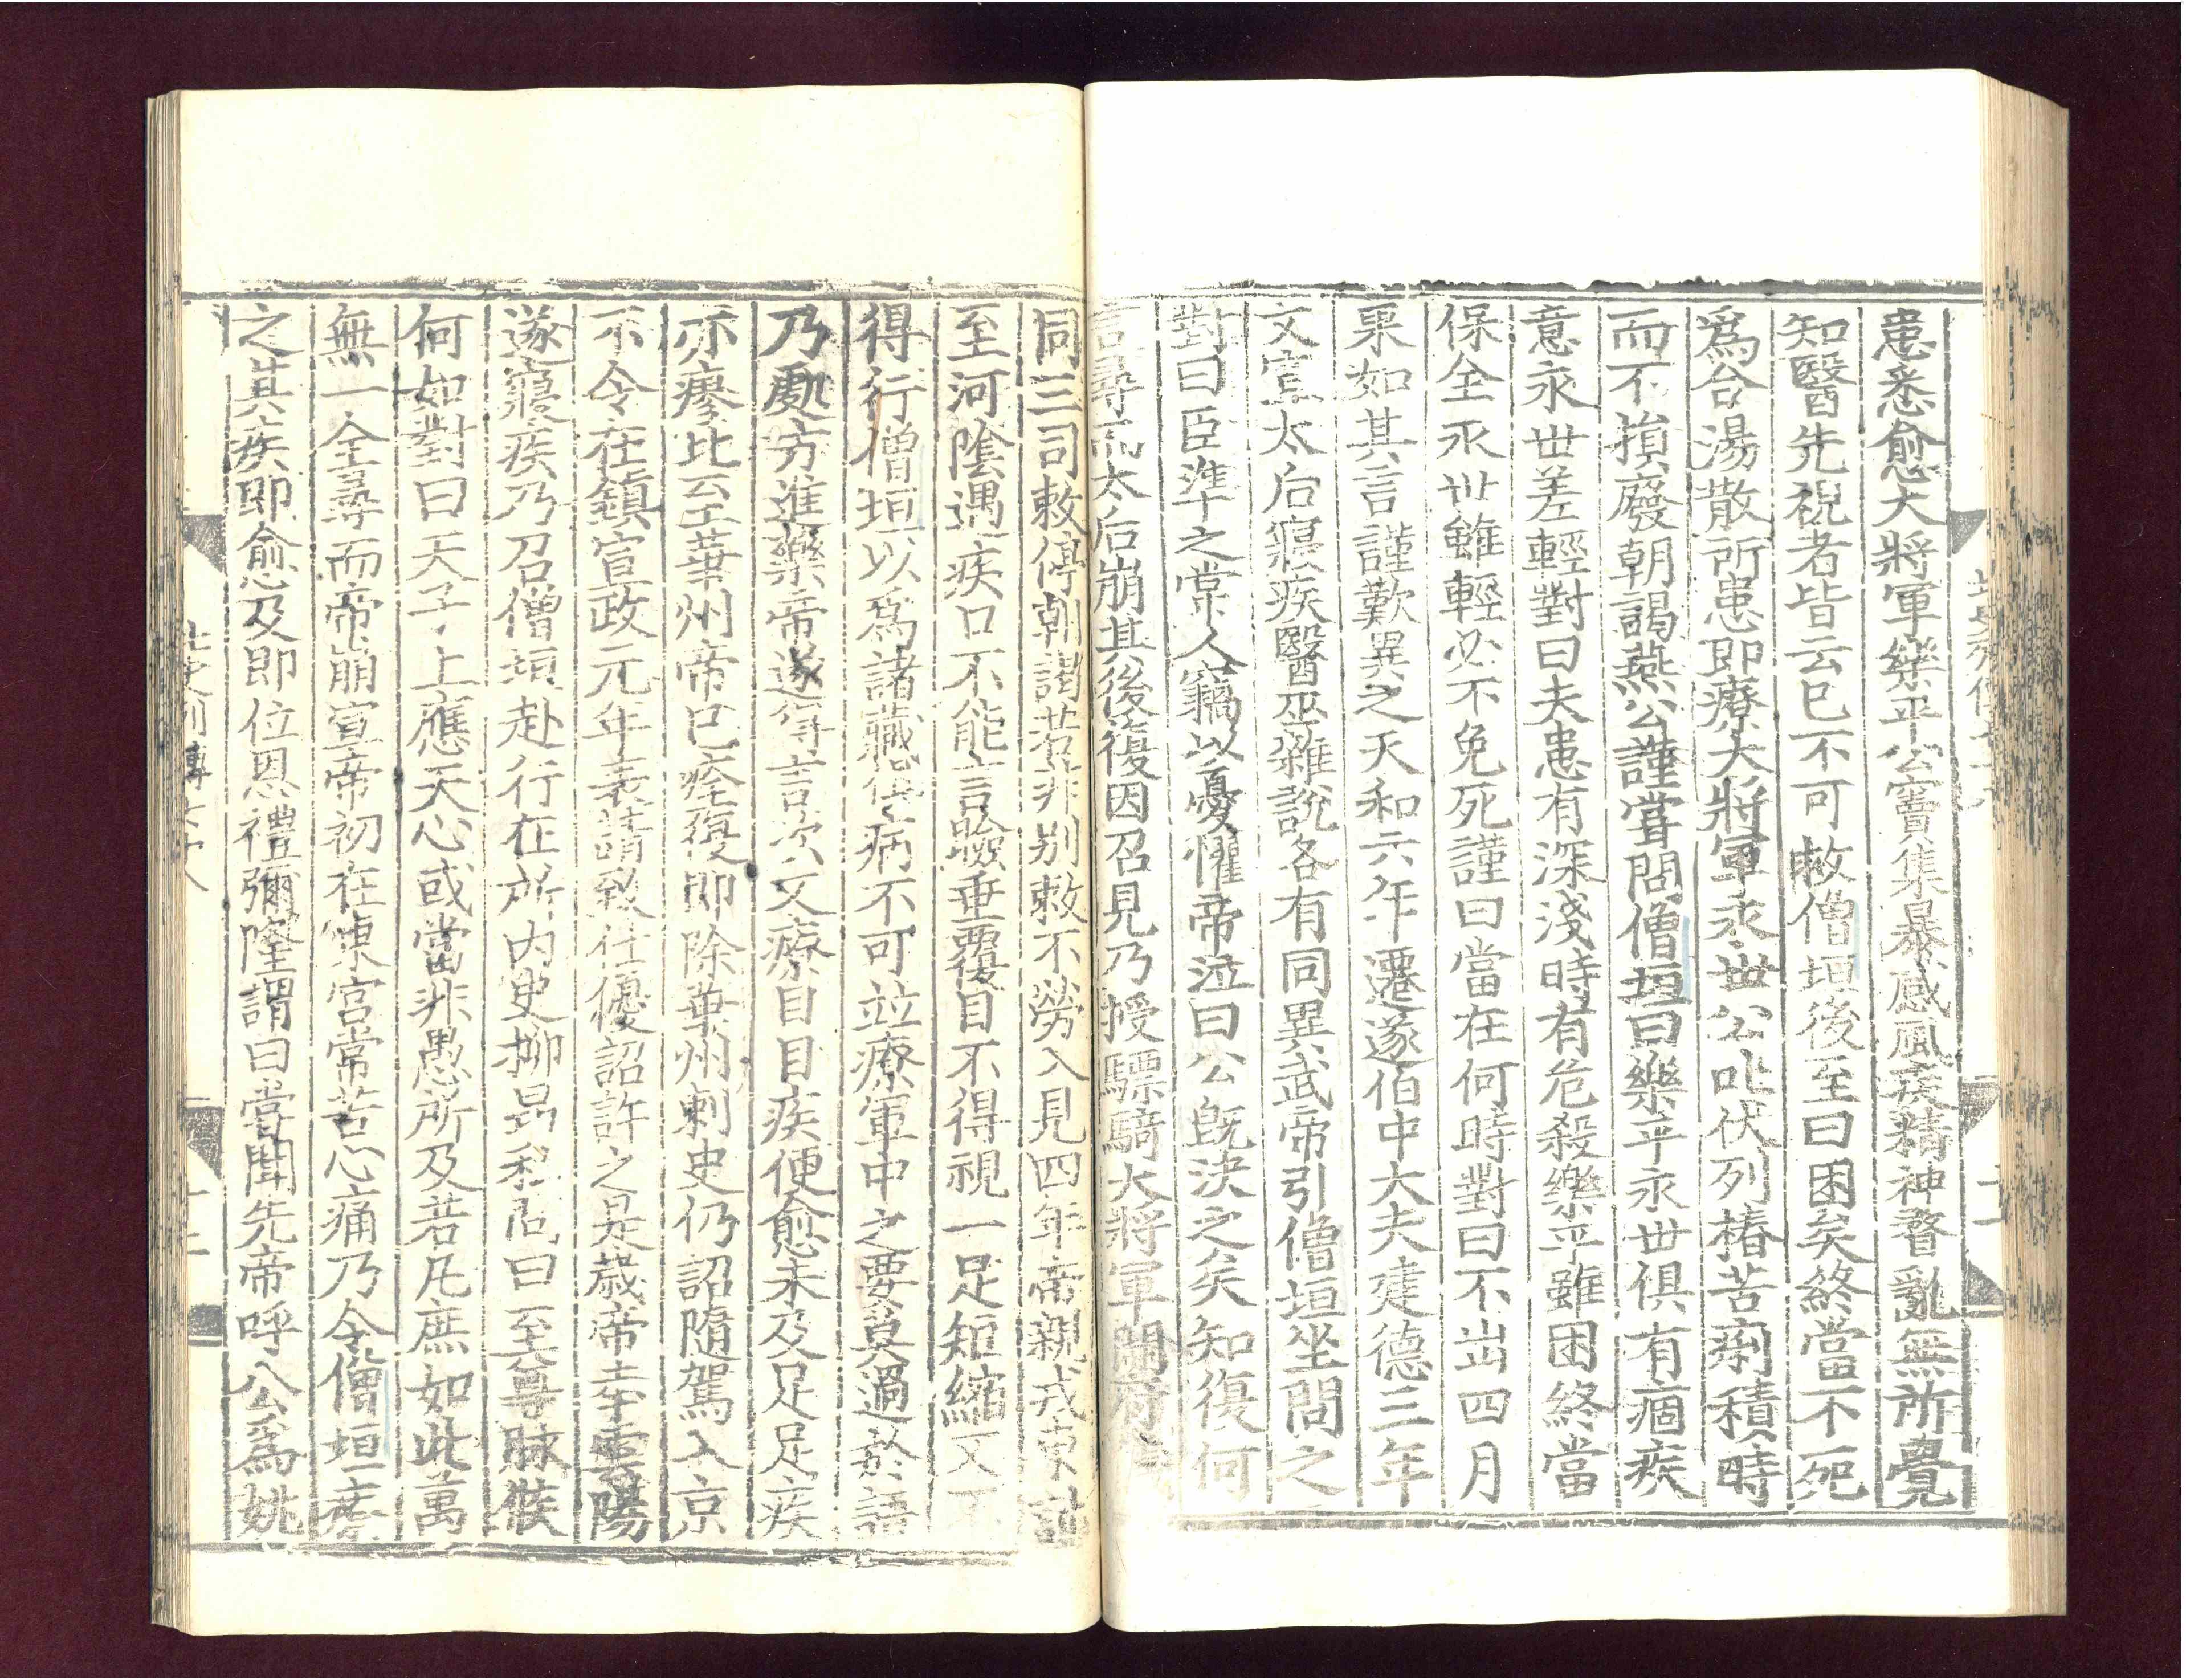 患悉愈大將軍樂平公竇集暴感風疾精神瞀亂無所覺
知醫先視者皆云已不可救僧垣後至曰困矣終當不死
爲合湯散所患即療大將軍永世公叱伏列椿苦痢積時
而不損廢朝謁燕公謹嘗問僧垣曰樂平永世俱有痼疾
意永世差輕對曰夫患有深淺時有危殺樂平雖困終當
保全永世雖輕必不免死謹曰當在何時對曰不出四月
果如其言謹歎異之天和六年遷遂伯中大夫建德三年
文宣太后寢疾醫巫雜說各有同異武帝引僧垣坐問之
對曰臣準之常人竊以憂懼帝泣曰公既決之矣知復何
言尋而太后崩其後復因召見乃授驃騎大將軍開府儀
同三司敕停朝謁若非別敕不勞入見四年帝親戎東討
至河陰遇疾口不能言瞼垂覆目不得視一足短縮又不
得行僧垣以爲諸藏俱病不可並療軍中之要莫過於語
乃處方進藥帝遂得言次又療目目疾便愈未及足足疾
亦瘳比至華州帝已痊復即除華州刺史仍詔隨駕入京
不令在鎮宣政元年表請致仕優詔許之是歲帝幸雲陽
遂寢疾乃召僧垣赴行在所内史柳昂私問曰至尊脉候
何如對曰天子上應天心或當非愚所及若凡庶如此萬
無一全尋而帝崩宣帝初在東宮常苦心痛乃令僧垣療
之其疾即愈及即位恩禮彌隆謂曰嘗聞先帝呼公爲姚